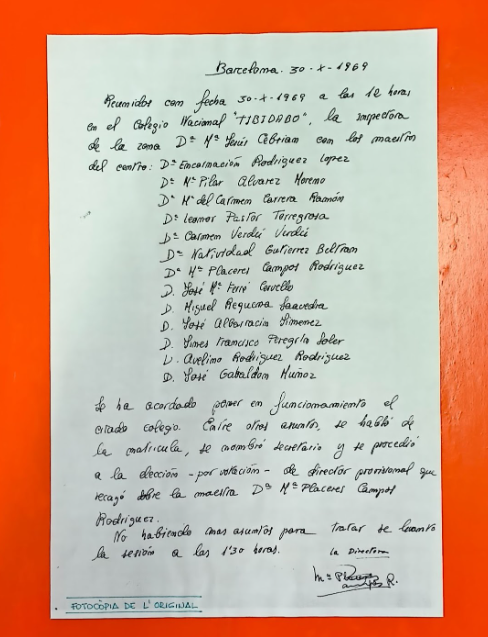 Barcelona. 30-X-1969
Reunidos con fecha 30-X-1969 a las 12 horas
en el Colegio Nacional "TIBIDABO", la inspectora
de la zona Dª Mª Jesús Cebrian con los maestros
del centro: Dª Encarnación Rodriguez Lopez
Dª Mª Pilar Alvarez Moreno
Dª Mª del Carmen Carrera Ramón
Dª Leonor Pastor Torregrosa
Dª Carmen Verdú Verdú
Dª Natividad Gutierrez Beltran
Dª Mª Placeres Campos Rodriguez
D. José Mª Ferré Curvello
D. Miguel Requena Saavedra
D. José Albarracia Jimenez
D. Francisco Peregrin Soler
D. Avelino Rodriguez Rodriguez
D. José Gabaldon Muñoz
Se ha acordado poner en funcionamiento el
citado colegio. Entre otros asuntos, se habló de
la matricula, se nombró secretario y se procedió
a la elección -por votación- de director provisional que
recayó sobre la maestra Dª Mª Placeres Campos
Rodriguez.
No habiendo mas asuntos para tratar se levantó
la sesión a las 1'30 horas.
La Directora
FOTOCÒPIA DE L'ORIGINAL